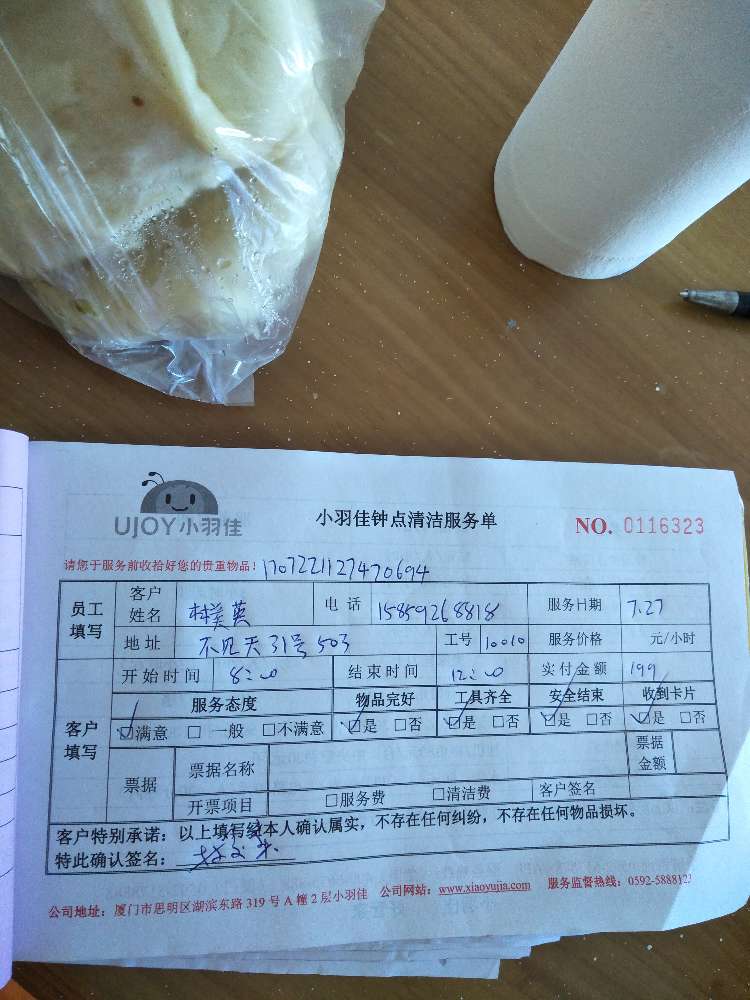 UJOY小羽佳
小羽佳钟点清洁服务单
NO. 0116323
请您于服务前收拾好您的贵重物品! 170722112747 0694
员工填写 客户姓名 林美英 电话 15859268818 服务日期 7.27
地址 不见天31号503 工号 10010 服务价格 元/小时
客户填写 开始时间 8:00 结束时间 12:00 实付金额 199
服务态度 物品完好 工具齐全 安全结束 收到卡片
☑满意 □一般 □不满意 ☑是 □否 ☑是 □否 ☑是 □否 ☑是 □否
票据 票据名称 票据金额
开票项目 □服务费 □清洁费 客户签名
客户特别承诺:以上填写经本人确认属实,不存在任何纠纷,不存在任何物品损坏。
特此确认签名:
公司地址:厦门市思明区湖滨东路319号A幢2层小羽佳 公司网站:www.xiaoyujia.com 服务监督热线:0592-5888123